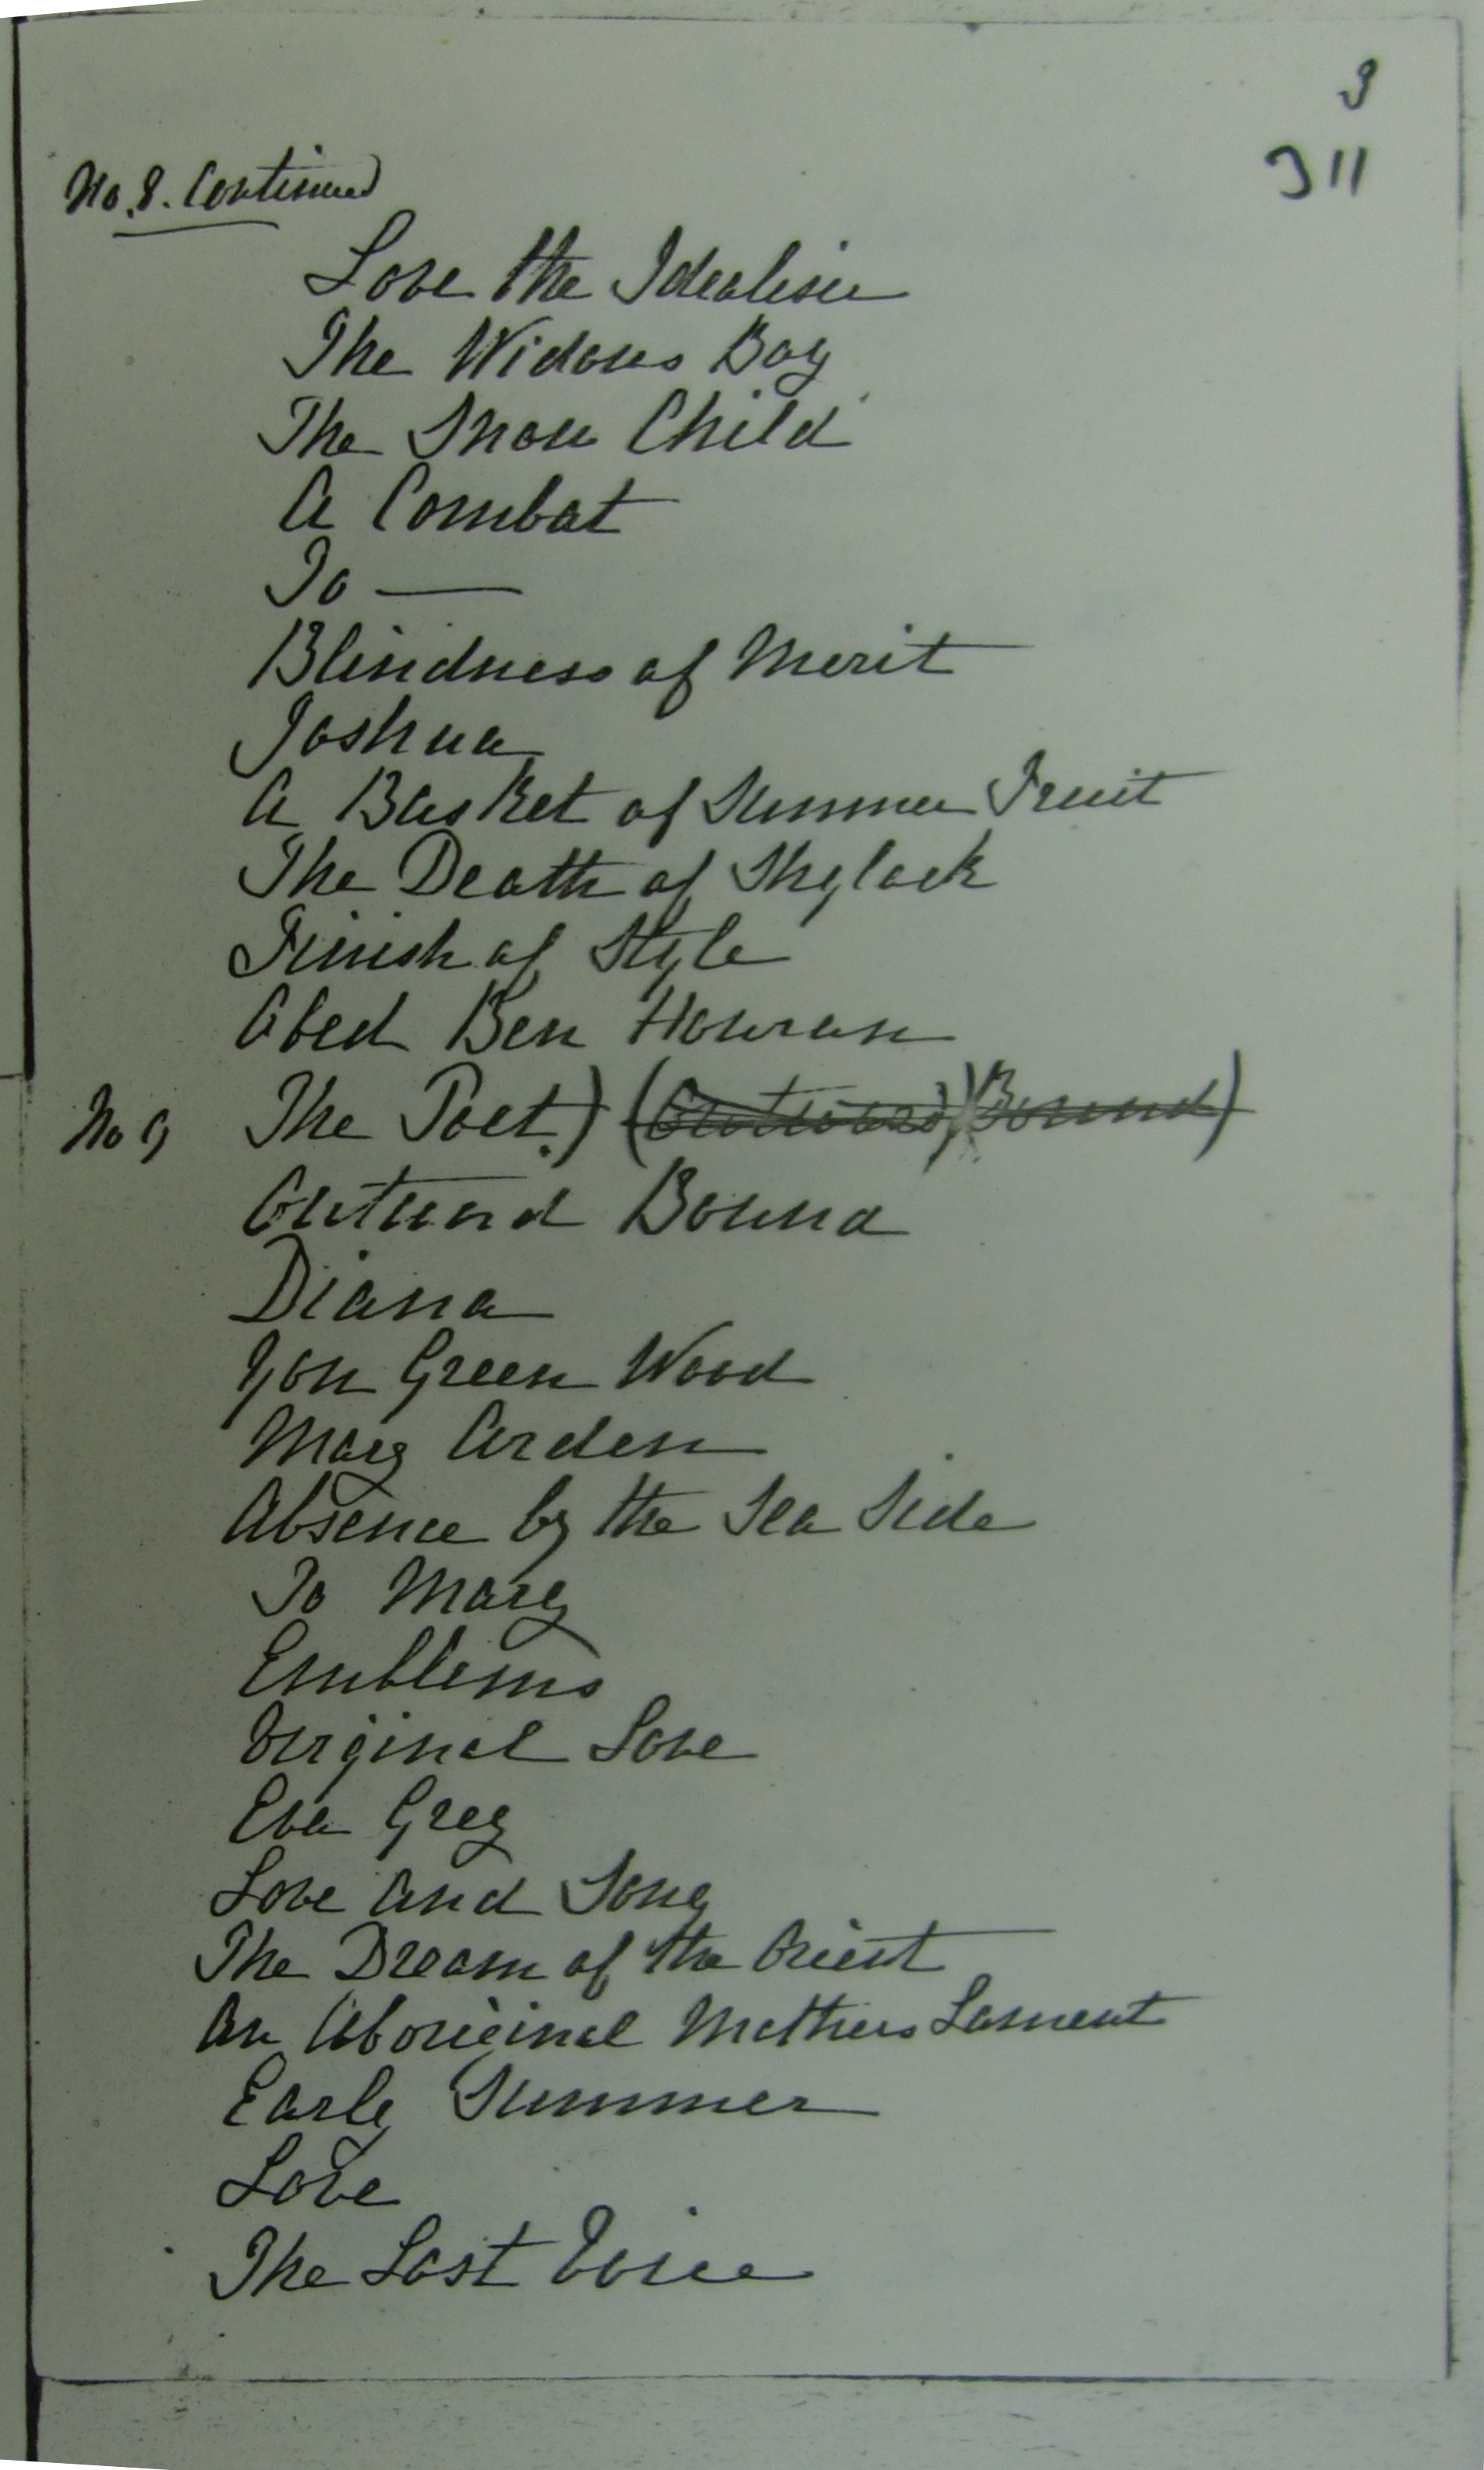 3
311
No. 8. Continued
Love the Idealiser
The Widows Boy
The Snow Child
A Combat
To —
Blindness of Merit
Joshua
A Basket of Summer Fruit
The Death of Shylock
Finish of Style
Abed Ben Houran
No 9 The Poet.) (Outward) (Bound)
Outward Bound
Diana
Yon Green Wood
Mary Arden
Absence by the Sea Side
To Mary
Emblems
Virginal Love
Eva Grey
Love and Song
The Dream of the Orient
An Aboriginal Mothers Lament
Early Summer
Love
The Lost Voice